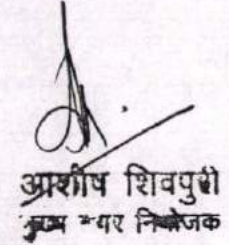 आशीष शिवपुरी
नगर नियोजक